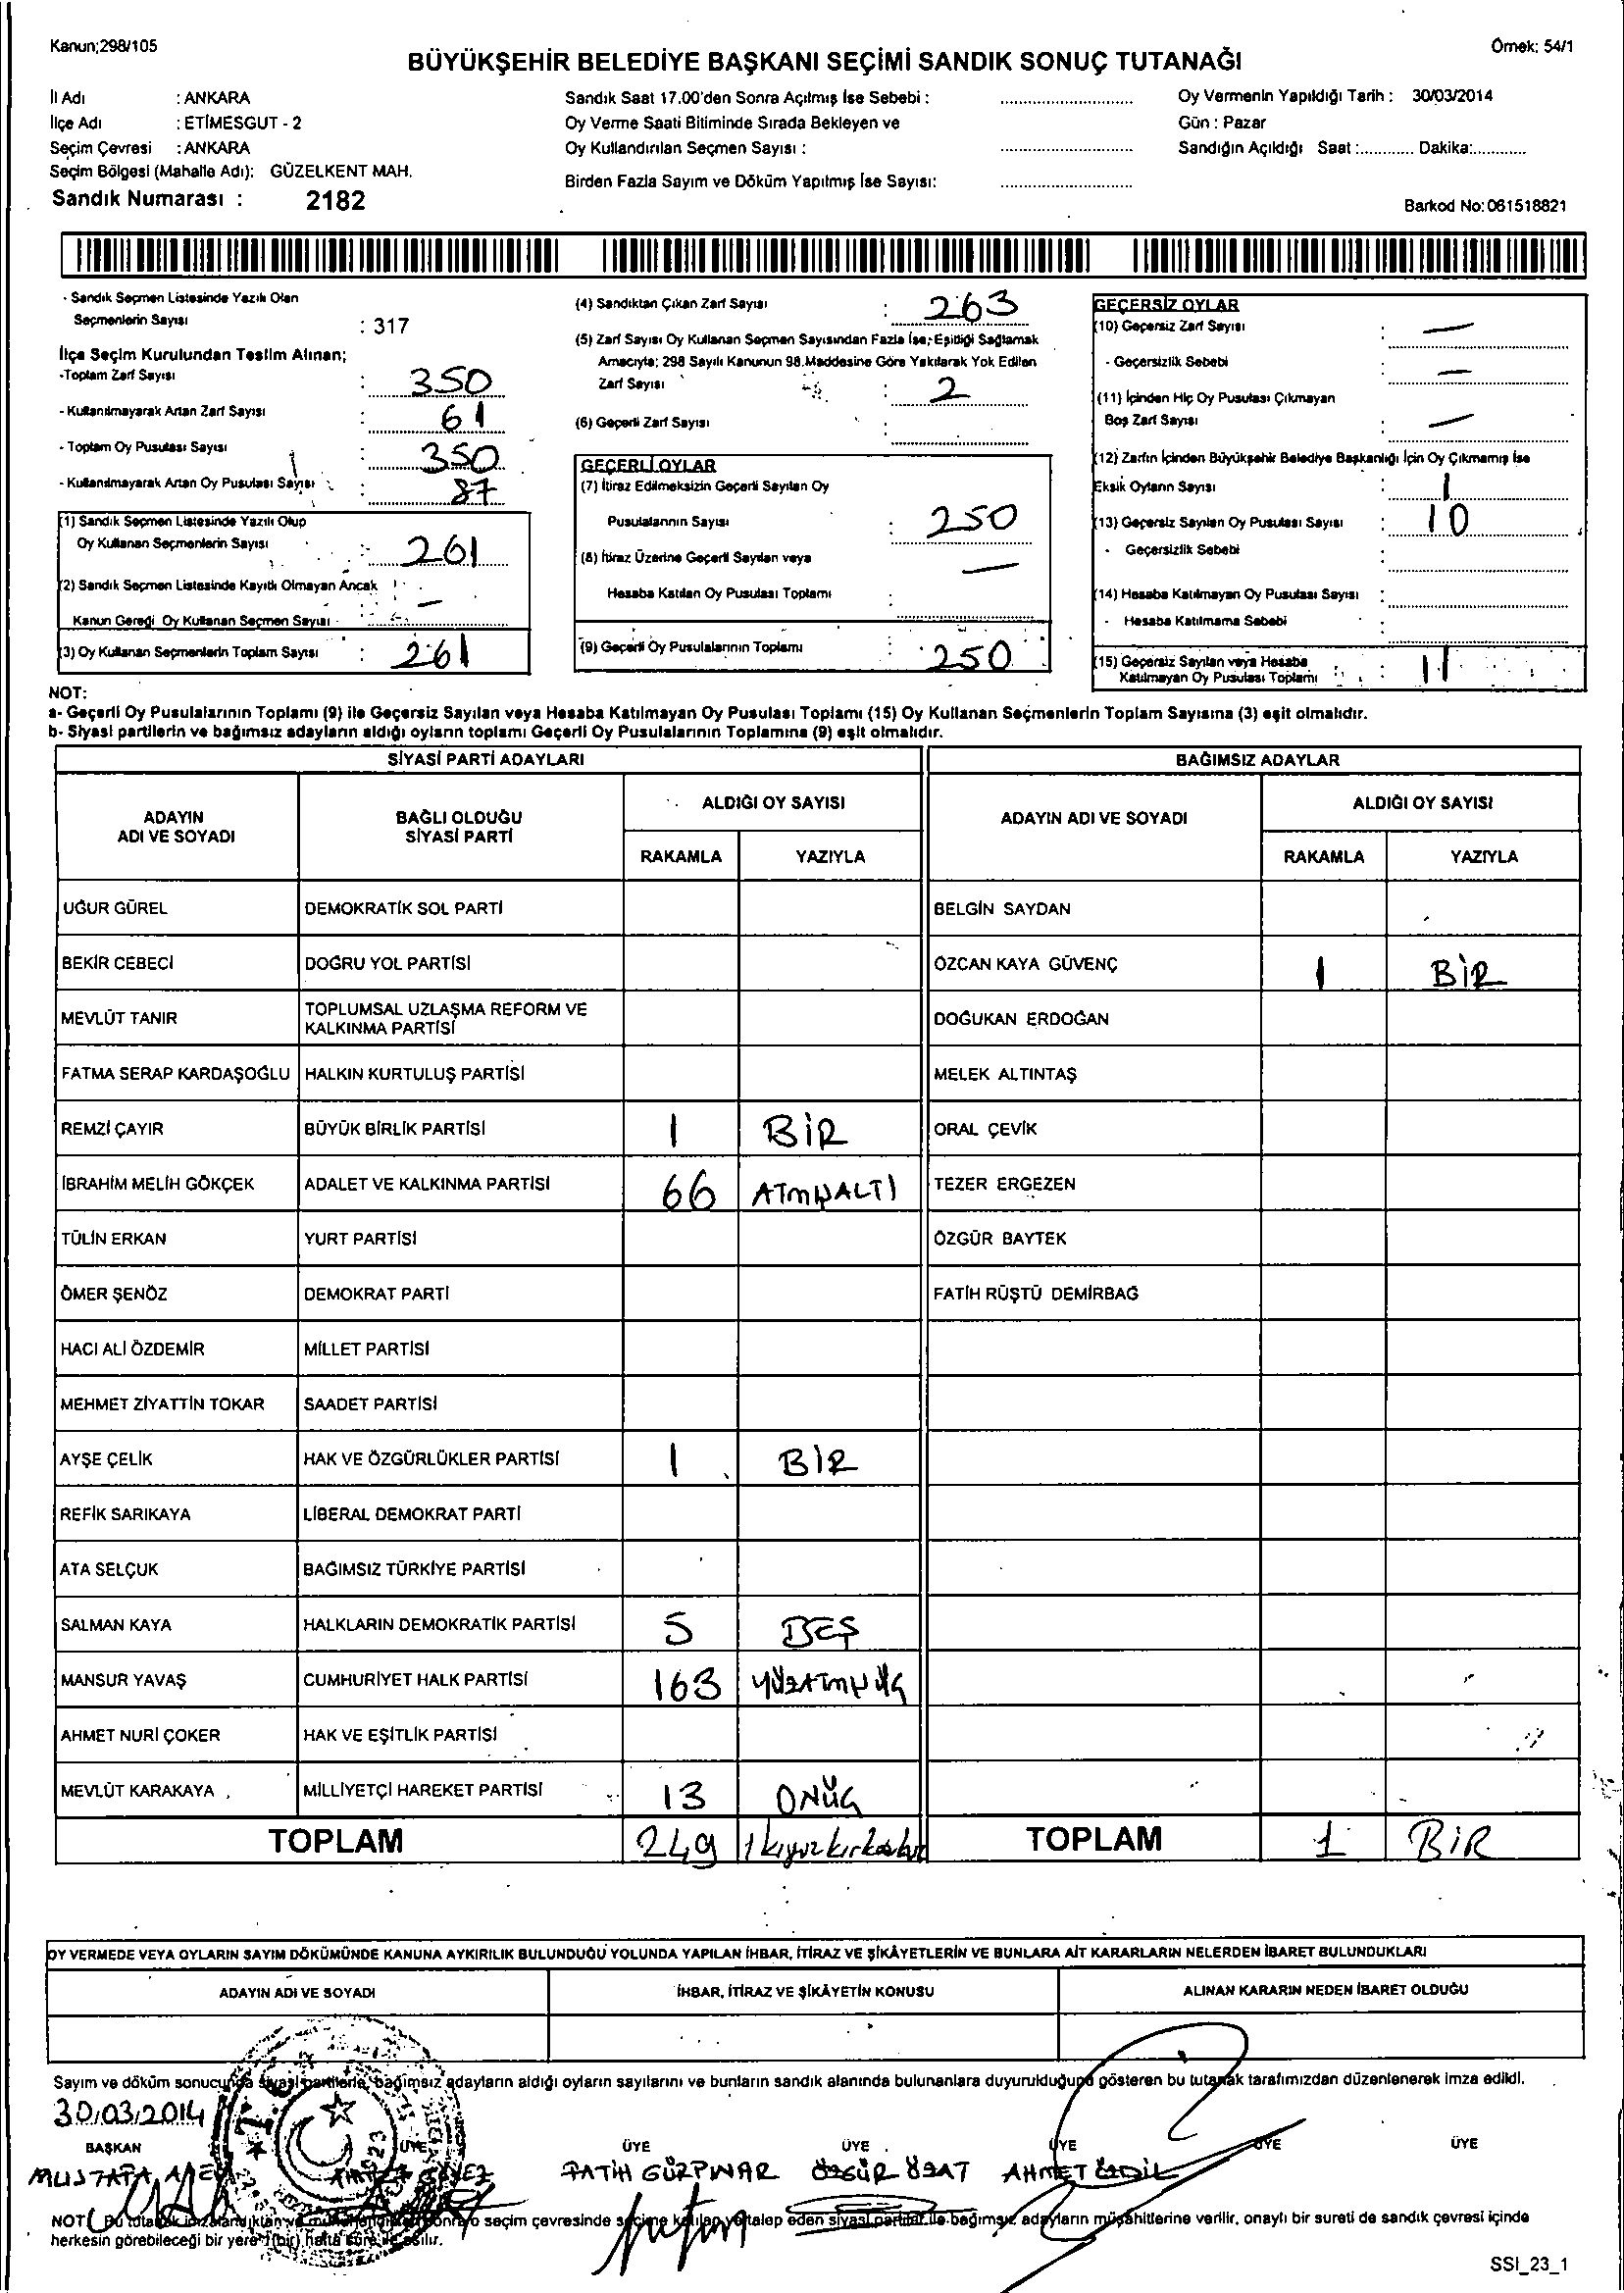 Kanun;298/105
Örnek: 54/1
BÜYÜKŞEHİR BELEDİYE BAŞKANI SEÇİMİ SANDIK SONUÇ TUTANAĞI
İl Adı : ANKARA
İlçe Adı : ETİMESGUT - 2
Seçim Çevresi : ANKARA
Seçim Bölgesi (Mahalle Adı): GÜZELKENT MAH.
Sandık Numarası : 2182
Sandık Saat 17.00'den Sonra Açılmış İse Sebebi :
Oy Verme Saati Bitiminde Sırada Bekleyen ve
Oy Kullandırılan Seçmen Sayısı :
Birden Fazla Sayım ve Döküm Yapılmış İse Sayısı:
Oy Vermenin Yapıldığı Tarih : 30/03/2014
Gün : Pazar
Sandığın Açıldığı Saat :............ Dakika:............
Barkod No:061518821
- Sandık Seçmen Listesinde Yazılı Olan
Seçmenlerin Sayısı : 317
İlçe Seçim Kurulundan Teslim Alınan;
-Toplam Zarf Sayısı : 350
- Kullanılmayarak Artan Zarf Sayısı : 61
- Toplam Oy Pusulası Sayısı : 350
- Kullanılmayarak Artan Oy Pusulası Sayısı : 87
(1) Sandık Seçmen Listesinde Yazılı Olup
Oy Kullanan Seçmenlerin Sayısı : 261
(2) Sandık Seçmen Listesinde Kayıtlı Olmayan Ancak
Kanun Gereği Oy Kullanan Seçmen Sayısı : —
(3) Oy Kullanan Seçmenlerin Toplam Sayısı : 261
(4) Sandıktan Çıkan Zarf Sayısı : 263
(5) Zarf Sayısı Oy Kullanan Seçmen Sayısından Fazla İse; Eşitliği Sağlamak
Amacıyla; 298 Sayılı Kanunun 98.Maddesine Göre Yakılarak Yok Edilen
Zarf Sayısı : 2
(6) Geçerli Zarf Sayısı :
GEÇERLİ OYLAR
(7) İtiraz Edilmeksizin Geçerli Sayılan Oy
Pusulalarının Sayısı : 250
(8) İtiraz Üzerine Geçerli Sayılan veya
Hesaba Katılan Oy Pusulası Toplamı : —
(9) Geçerli Oy Pusulalarının Toplamı : 250
GEÇERSİZ OYLAR
(10) Geçersiz Zarf Sayısı : —
- Geçersizlik Sebebi : —
(11) İçinden Hiç Oy Pusulası Çıkmayan
Boş Zarf Sayısı : —
(12) Zarfın İçinden Büyükşehir Belediye Başkanlığı İçin Oy Çıkmamış İse
Eksik Oyların Sayısı : 1
(13) Geçersiz Sayılan Oy Pusulası Sayısı : 10
- Geçersizlik Sebebi :
(14) Hesaba Katılmayan Oy Pusulası Sayısı :
- Hesaba Katılmama Sebebi :
(15) Geçersiz Sayılan veya Hesaba
Katılmayan Oy Pusulası Toplamı : 11
NOT:
a- Geçerli Oy Pusulalarının Toplamı (9) ile Geçersiz Sayılan veya Hesaba Katılmayan Oy Pusulası Toplamı (15) Oy Kullanan Seçmenlerin Toplam Sayısına (3) eşit olmalıdır.
b- Siyasi partilerin ve bağımsız adayların aldığı oyların toplamı Geçerli Oy Pusulalarının Toplamına (9) eşit olmalıdır.
SİYASİ PARTİ ADAYLARI
BAĞIMSIZ ADAYLAR
ADAYIN ADI VE SOYADI
BAĞLI OLDUĞU SİYASİ PARTİ
ALDIĞI OY SAYISI
RAKAMLA YAZIYLA
ADAYIN ADI VE SOYADI
ALDIĞI OY SAYISI
RAKAMLA YAZIYLA
UĞUR GÜREL DEMOKRATİK SOL PARTİ BELGİN SAYDAN
BEKİR CEBECİ DOĞRU YOL PARTİSİ ÖZCAN KAYA GÜVENÇ 1 BİR
MEVLÜT TANIR TOPLUMSAL UZLAŞMA REFORM VE KALKINMA PARTİSİ DOĞUKAN ERDOĞAN
FATMA SERAP KARDAŞOĞLU HALKIN KURTULUŞ PARTİSİ MELEK ALTINTAŞ
REMZİ ÇAYIR BÜYÜK BİRLİK PARTİSİ 1 BİR ORAL ÇEVİK
İBRAHİM MELİH GÖKÇEK ADALET VE KALKINMA PARTİSİ 66 ATMIŞALTI TEZER ERGEZEN
TÜLİN ERKAN YURT PARTİSİ ÖZGÜR BAYTEK
ÖMER ŞENÖZ DEMOKRAT PARTİ FATİH RÜŞTÜ DEMİRBAĞ
HACI ALİ ÖZDEMİR MİLLET PARTİSİ
MEHMET ZİYATTİN TOKAR SAADET PARTİSİ
AYŞE ÇELİK HAK VE ÖZGÜRLÜKLER PARTİSİ 1 BİR
REFİK SARIKAYA LİBERAL DEMOKRAT PARTİ
ATA SELÇUK BAĞIMSIZ TÜRKİYE PARTİSİ
SALMAN KAYA HALKLARIN DEMOKRATİK PARTİSİ 5 BEŞ
MANSUR YAVAŞ CUMHURİYET HALK PARTİSİ 163 YÜZATMIŞÜÇ
AHMET NURİ ÇOKER HAK VE EŞİTLİK PARTİSİ
MEVLÜT KARAKAYA MİLLİYETÇİ HAREKET PARTİSİ 13 ONÜÇ
TOPLAM 249 TOPLAM 1 BİR
OY VERMEDE VEYA OYLARIN SAYIM DÖKÜMÜNDE KANUNA AYKIRILIK BULUNDUĞU YOLUNDA YAPILAN İHBAR, İTİRAZ VE ŞİKÂYETLERİN VE BUNLARA AİT KARARLARIN NELERDEN İBARET BULUNDUKLARI
ADAYIN ADI VE SOYADI İHBAR, İTİRAZ VE ŞİKÂYETİN KONUSU ALINAN KARARIN NEDEN İBARET OLDUĞU
Sayım ve döküm sonucunda siyasi partilerle, bağımsız adayların aldığı oyların sayılarını ve bunların sandık alanında bulunanlara duyurulduğunu gösteren bu tutanak tarafımızdan düzenlenerek imza edildi.
30/03/2014
BAŞKAN ÜYE ÜYE ÜYE ÜYE ÜYE ÜYE
MUSTAFA FATİH GÜRPINAR ÖZGÜR AHMET
NOT: Bu tutanak seçim çevresinde seçime katılan ve talep eden siyasi partiler ile bağımsız adayların müşahitlerine verilir, onaylı bir sureti de sandık çevresi içinde
herkesin görebileceği bir yere 1(bir) hafta süre ile asılır.
SSI_23_1